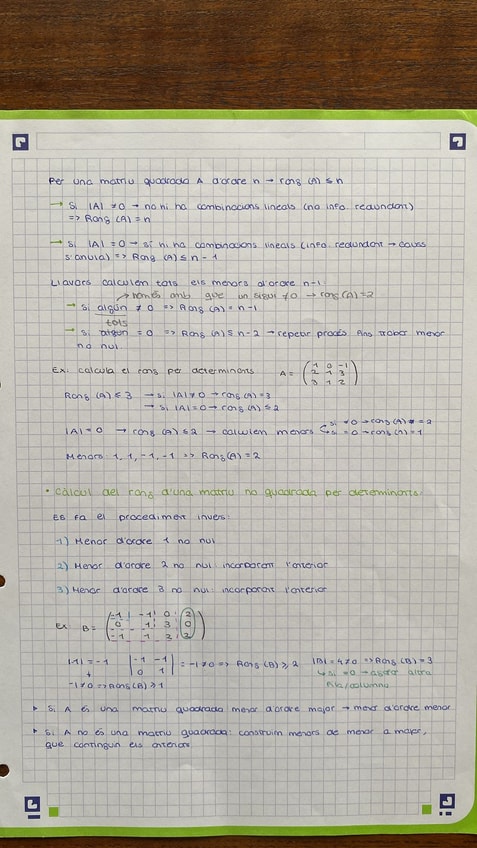 Per una matriu quadrada A d'ordre n → rang (A) ≤ n
→ Si |A| ≠ 0 → no hi ha combinacions lineals (no info. redundant)
=> Rang (A) = n
→ Si |A| = 0 → sí hi ha combinacions lineals (info. redundant → causa
s'anula) => Rang (A) ≤ n - 1
Llavors calculem tots els menors d'ordre n-1:
només amb que un sigui ≠ 0 → rang(A) = 2
→ Si algún ≠ 0 => Rang (A) = n-1
tots
→ Si algún = 0 => Rang (A) ≤ n-2 → repetir procés fins trobar menor
no nul.
Ex: calcula el rang per determinants A = ( 1 0 -1
2 1 3
3 1 2 )
Rang (A) ≤ 3 → si |A| ≠ 0 → rang (A) = 3
→ si |A| = 0 → rang (A) ≤ 2
|A| = 0 → rang (A) ≤ 2 → calculem menors si ≠ 0 → rang (A) = 2
si = 0 → rang (A) = 1
Menors 1, 1, -1, -1 => Rang (A) = 2
• Càlcul del rang d'una matriu no quadrada per determinants:
Es fa el procediment invers:
1) Menor d'ordre 1 no nul
2) Menor d'ordre 2 no nul incorporant l'anterior
3) Menor d'ordre 3 no nul incorporant l'anterior
Ex: B = ( -1 -1 0 2
0 1 3 0
-1 1 2 2 )
|-1| = -1 | -1 -1 | = -1 ≠ 0 => Rang (B) ≥ 2 |B| = 4 ≠ 0 => Rang (B) = 3
0 1
↳ si = 0 → agafar altra
-1 ≠ 0 => Rang (B) ≥ 1 fila/columna
▸ Si A és una matriu quadrada menor d'ordre major → menor d'ordre menor
▸ Si A no és una matriu quadrada: construim menors de menor a major,
que continguin els anteriors